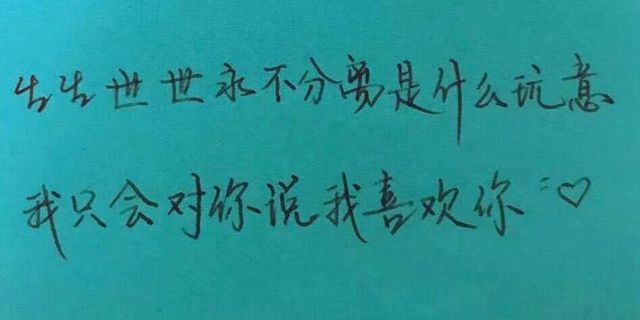 生生世世永不分离是什么玩意
我只会对你说我喜欢你:♡